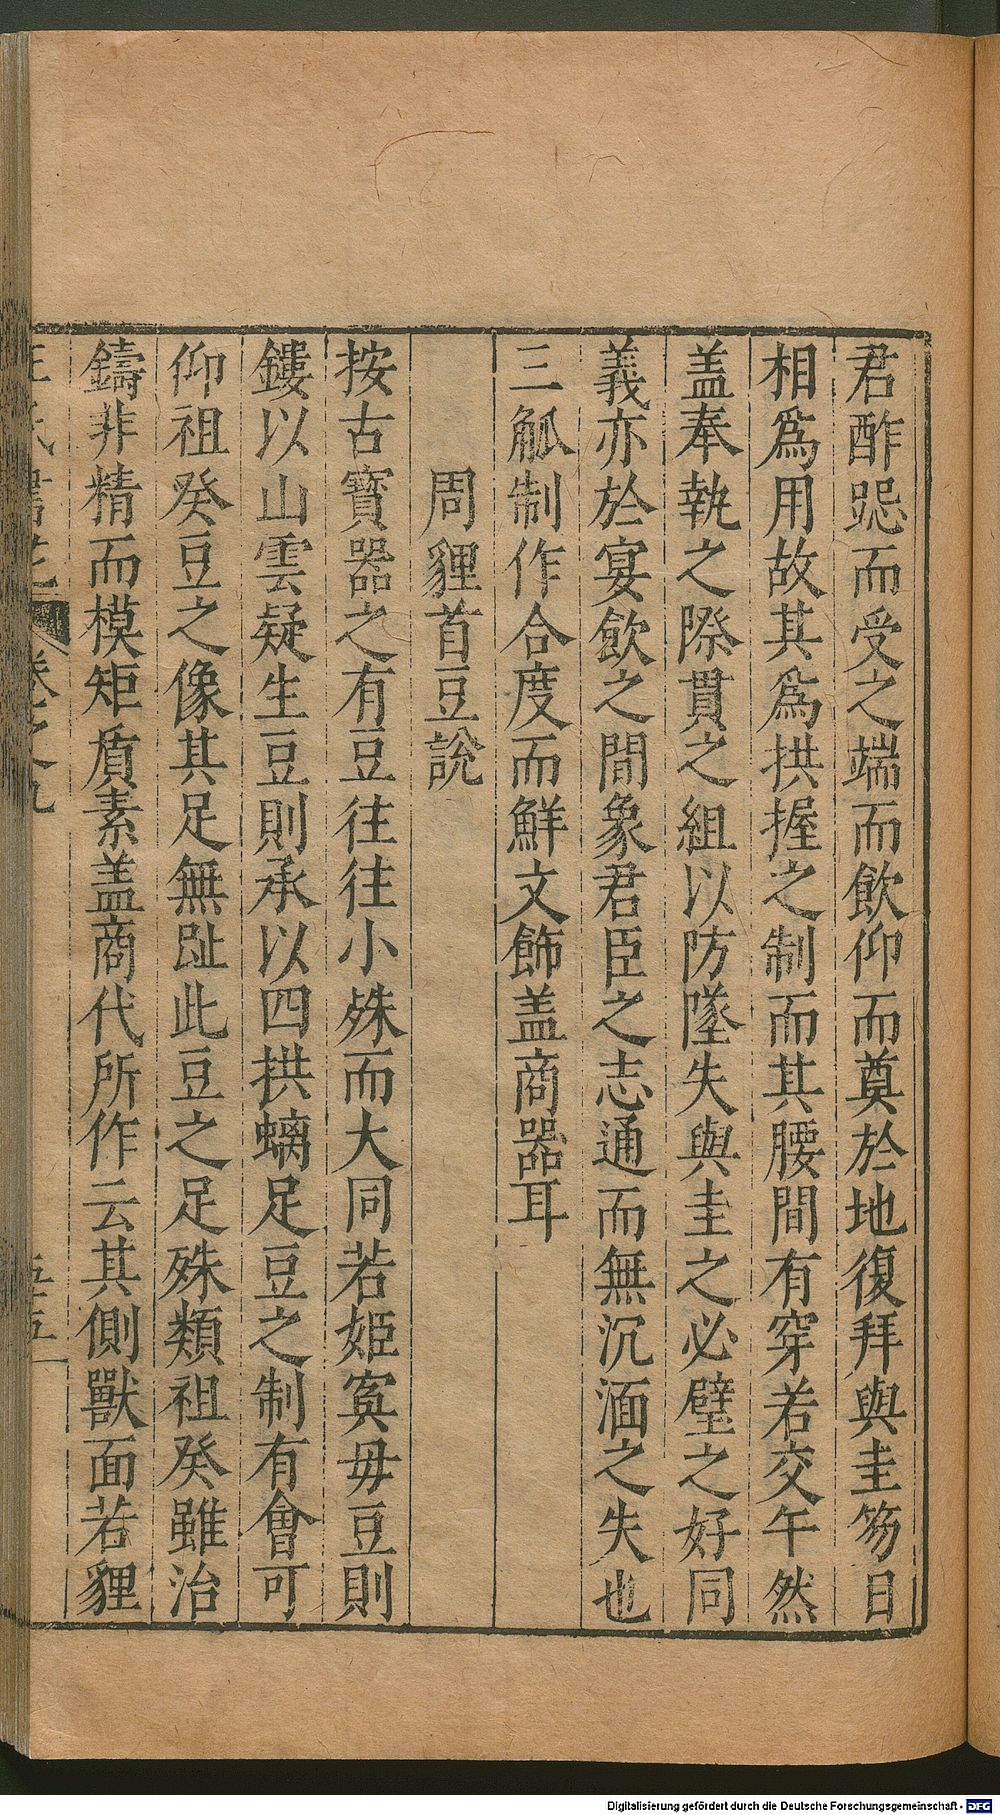 君酢跽而受之端而飲仰而奠於地復拜與圭笏日
相爲用故其爲拱握之制而其腰間有穿若交午然
盖奉執之際貫之組以防墜失與圭之必璧之好同
義亦於宴飲之間象君臣之志通而無沉湎之失也
三觚制作合度而鮮文飾盖商器耳
周貍首豆說
按古寶器之有豆往往小殊而大同若姬寏毋豆則
鏤以山雲疑生豆則承以四拱螭足豆之制有會可
仰祖癸豆之像其足無趾此豆之足殊類祖癸雖冶
鑄非精而模矩質素盖商代所作云其側獸面若貍
王氏書苑 卷之九 五十五
Digitalisierung gefördert durch die Deutsche Forschungsgemeinschaft - DFG